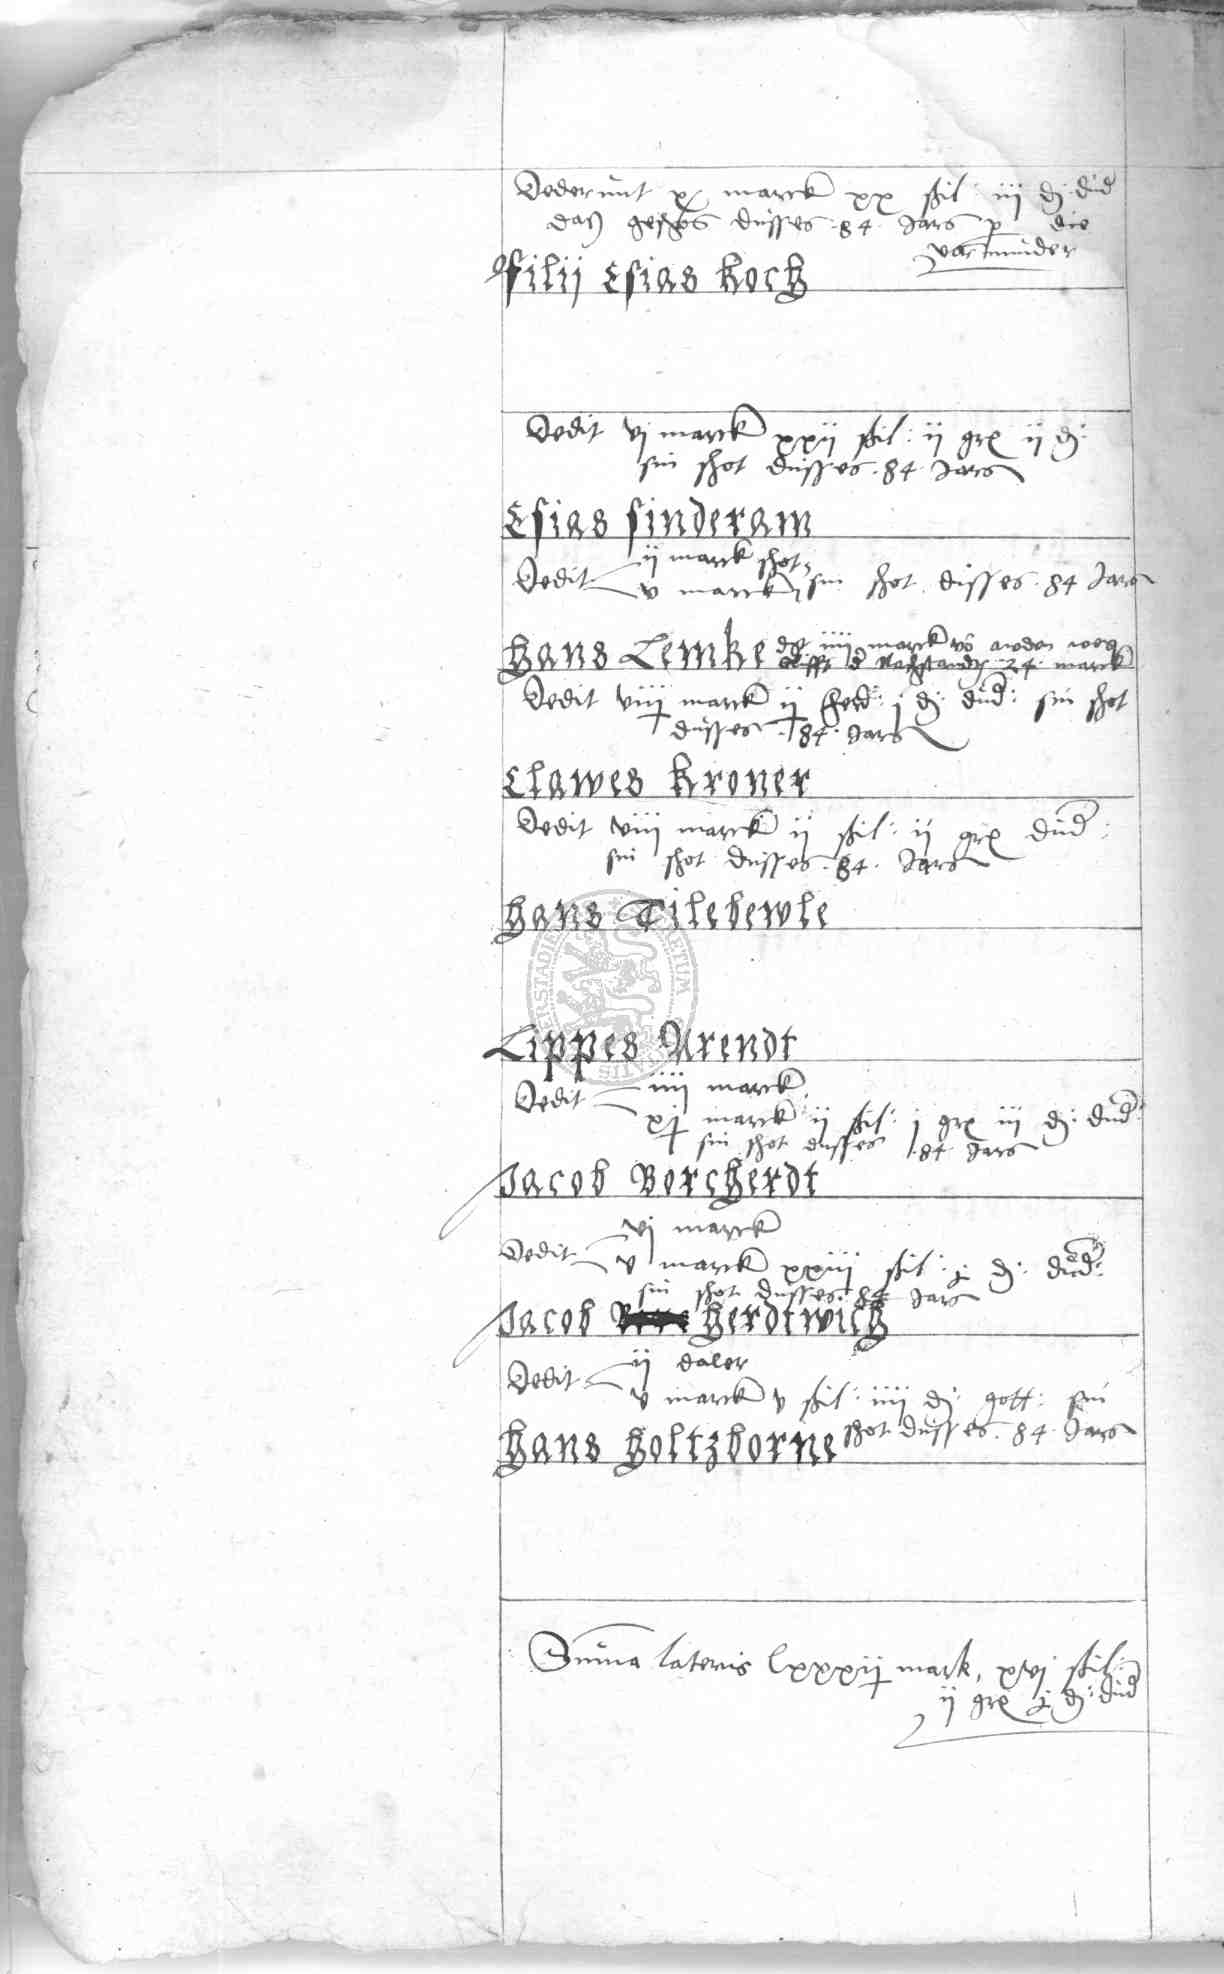 Dederunt x marck xx ßil: iij d: dud
dath geschos dusses 84 Jars p die
varmunder
filij Esias Koch
Dedit vj marck xxij ßil: ij grx ij d:
sin shot dusses 84 Jars
Esias sinderam
Dedit ij marck shot
v marck sin shot dusses 84 Jars
Hans Lemke iiij marck
24 marck
Dedit viij marck ij ferd: j d: dud: sin shot
dusses 84 Jars
Clawes Kroner
Dedit viij marck ij ßil: ij grx dud:
sin shot dusses 84 Jars
Hans Tilebewle
Lippes Arendt
Dedit iiij marck
xj marck ij ßil: j grx iij d: dud:
sin shot dusses 84 Jars
Jacob Borcherdt
Dedit vj marck
v marck xxiij ßil: j d: dud:
sin shot dusses 84 Jars
Jacob Herdtwich
Dedit ij daler
v marck v ßil: iiij d: gott: sin
shot dusses 84 Jars
Hans Holtzborne
Suma lateris lxxxij mark, xvj ßil:
ij grx j d: dud